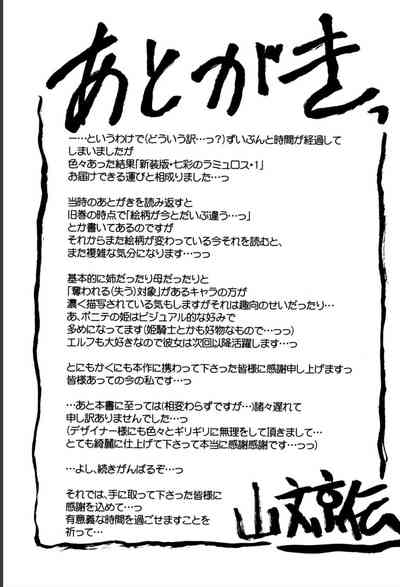 あとがきっ
ー…というわけで(どういう訳…っ？)ずいぶんと時間が経過して
しまいましたが
色々あった結果「新装版・七彩のラミュロス・1」
お届けできる運びと相成りました…っ
当時のあとがきを読み返すと
旧巻の時点で「絵柄が今とだいぶ違う…っ」
とか書いてあるのですが
それからまた絵柄が変わっている今それを読むと、
また複雑な気分になります…っっ
基本的に姉だったり母だったりと
「奪われる(失う)対象」があるキャラの方が
濃く描写されている気もしますがそれは趣向のせいだったり…
あ、ポニテの姫はビジュアル的な好みで
多めになってます(姫騎士とかも好物なもので…っっ)
エルフも大好きなので彼女は次回以降活躍します…っ
とにもかくにも本作に携わって下さった皆様に感謝申し上げますっ
皆様あっての今の私です…っ
…あと本書に至っては(相変わらずですが…)諸々遅れて
申し訳ありませんでした…っ
(デザイナー様にも色々とギリギリに無理をして頂きまして…
とても綺麗に仕上げて下さって本当に感謝感謝です…っっ)
…よし、続きがんばるぞ…っ
それでは、手に取って下さった皆様に
感謝を込めて…っ
有意義な時間を過ごせますことを
祈って…
山文京伝